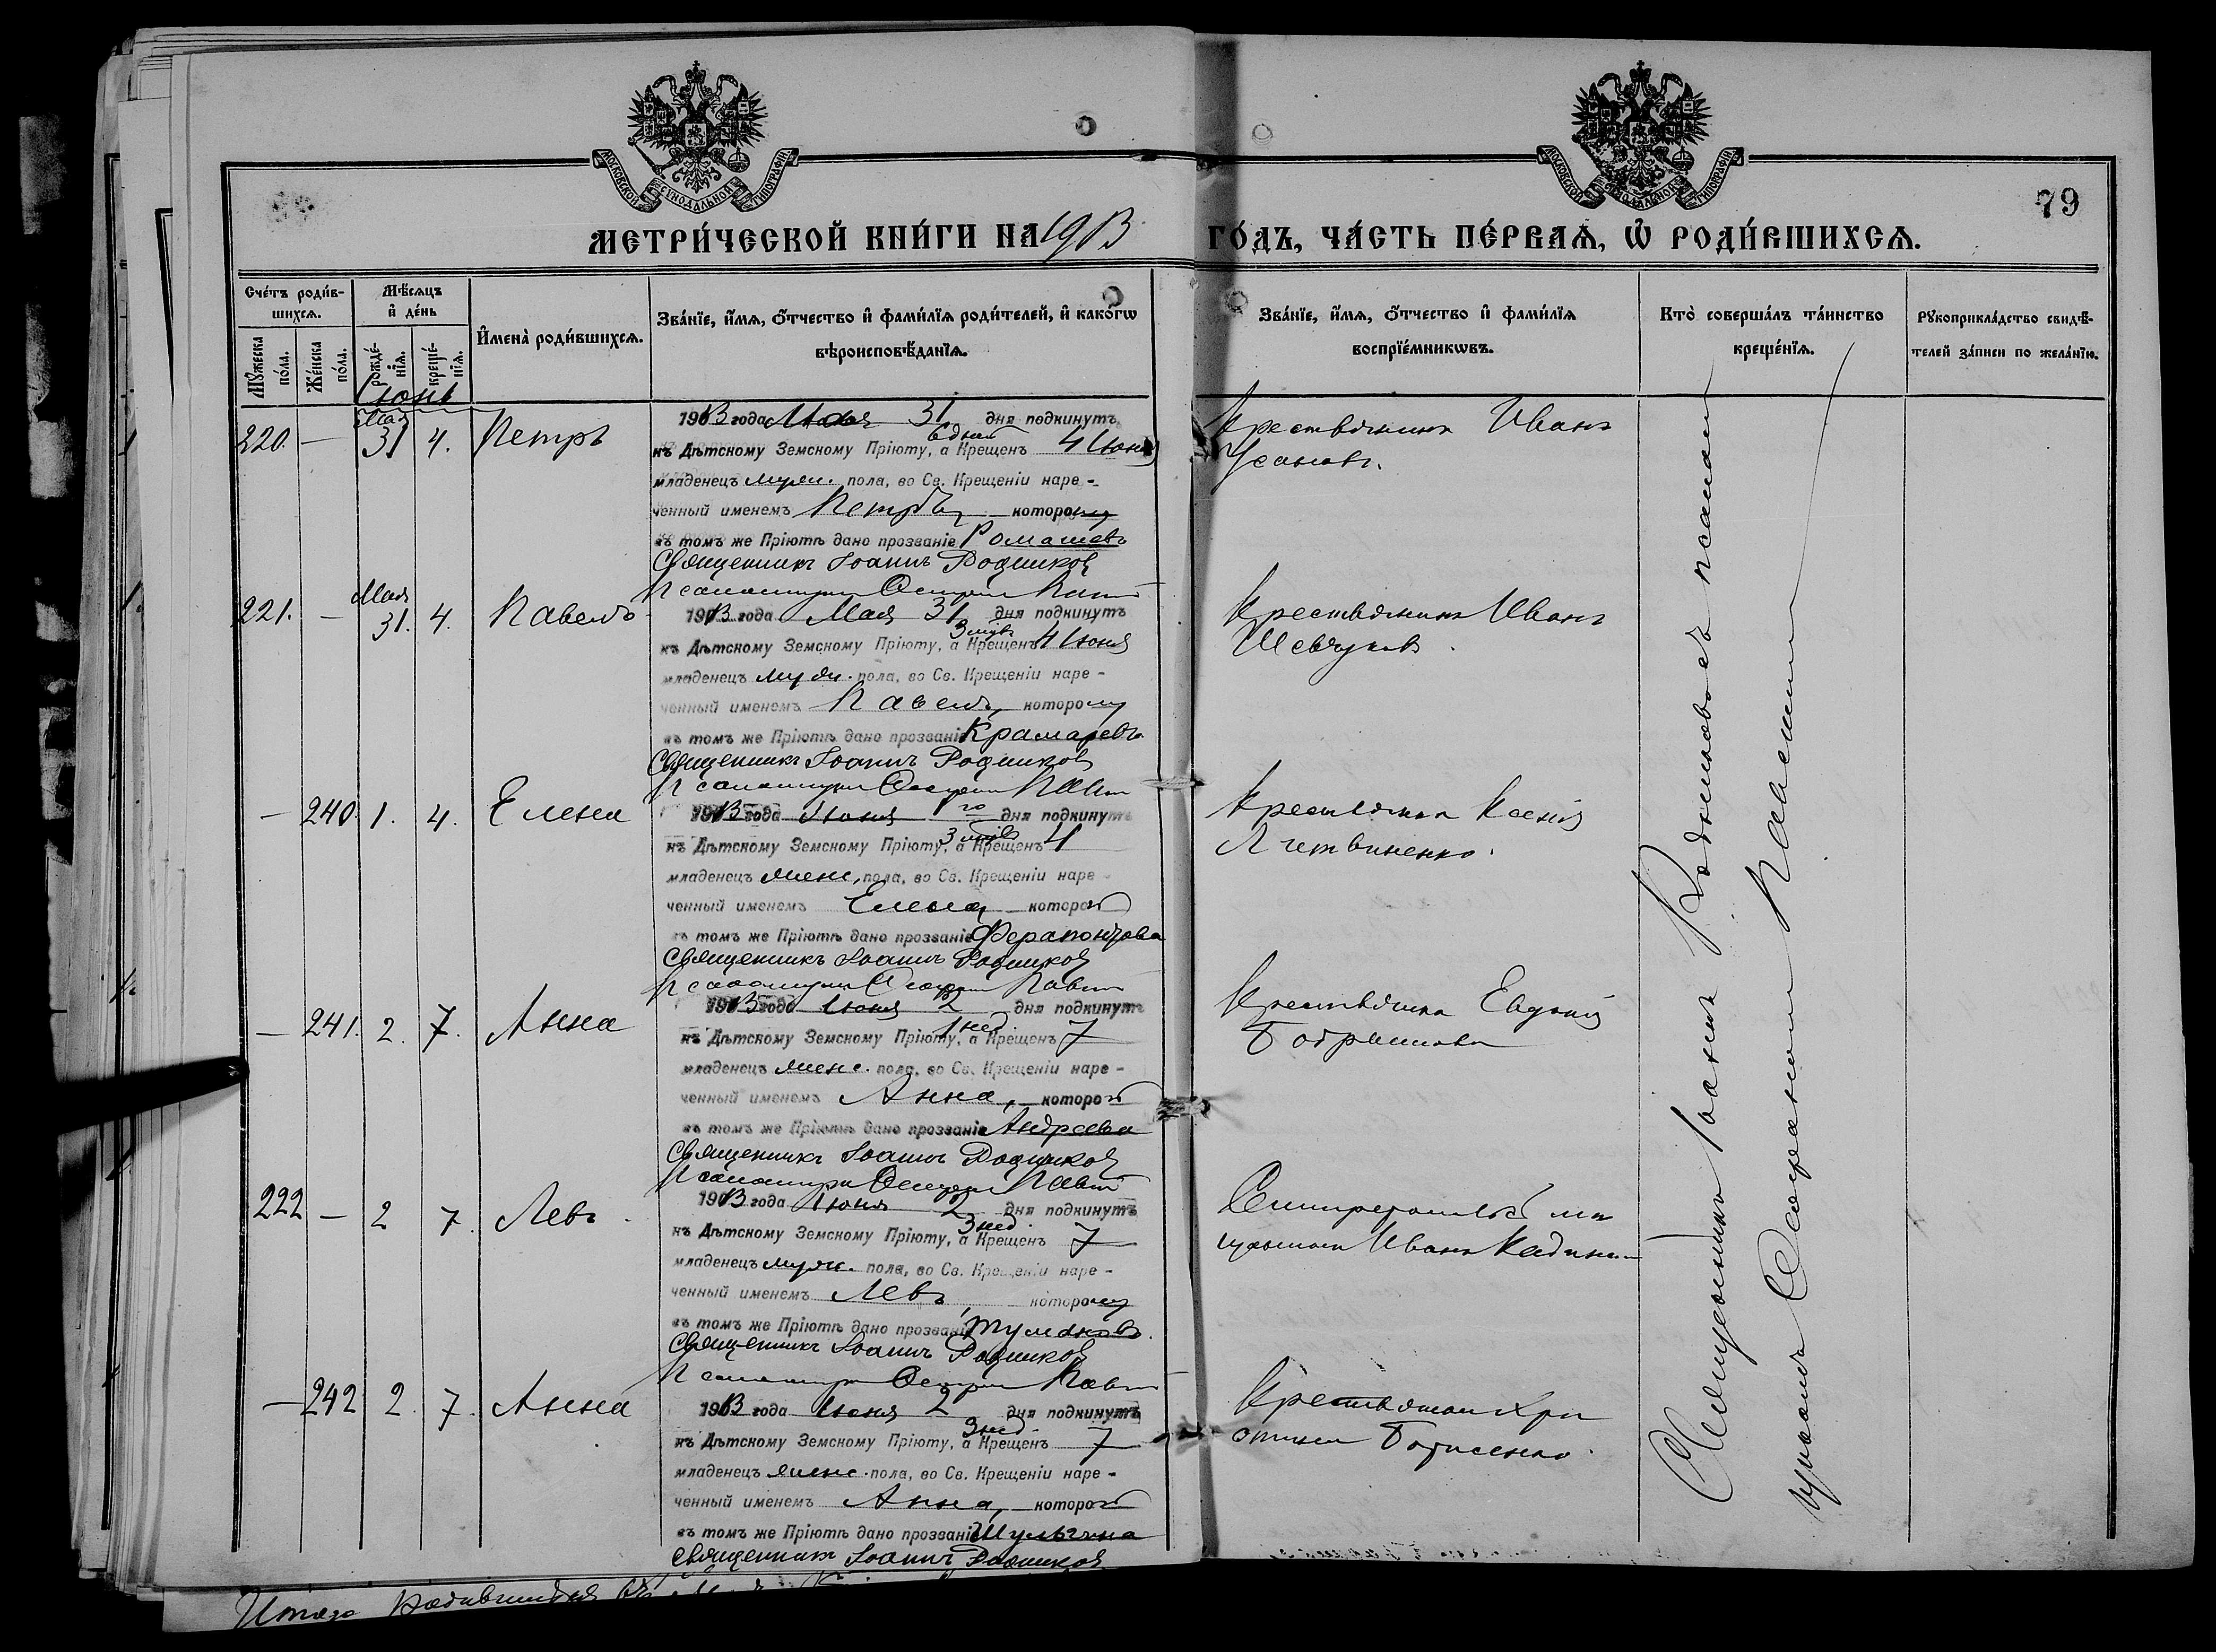 МОСКОВСКОЙ СѴНОДАЛЬНОЙ ТИПОГРАФІИ.
МОСКОВСКОЙ СѴНОДАЛЬНОЙ ТИПОГРАФІИ.
79
МЕТРИ́ЧЕСКОЙ КНИ́ГИ НА 1913 ГО́ДЪ, ЧА́СТЬ ПЕ́РВАѦ, Ѡ҆ РОДИ́ВШИХСѦ.
Сче́тъ роди́в-
шихсѧ.
Мꙋ́жеска по́ла.
Же́нска по́ла.
Мѣ́сѧцъ
и҆ де́нь
рожде́-
нїѧ.
креще́-
нїѧ.
И҆мена̀ роди́вшихсѧ.
Зва́нїе, и҆́мѧ, ѻ҆́тчество и҆ фами́лїѧ роди́телей, и҆ како́гѡ
вѣроисповѣ́данїѧ.
Зва́нїе, и҆́мѧ, ѻ҆́тчество и҆ фами́лїѧ
воспрїе́мникѡвъ.
Кто̀ соверша́лъ та́инство
креще́нїѧ.
Рꙋкоприкла́дство свидѣ́-
телей за́писи по жела́нїю.
Іюнь
220. — Мая 31 4. Петръ
1913 года Мая 31 дня подкинутъ
6 дней
къ Дѣтскому Земскому Пріюту, а Крещенъ 4 Іюня
младенецъ муж. пола, во Св. Крещеніи наре-
ченный именемъ Петръ, которому
въ томъ же Пріютѣ дано прозваніе Ромашевъ
Священникъ Іоаннъ Родниковъ
Псаломщикъ
Крестьянинъ Иванъ
Усановъ.
221. — Мая 31. 4. Павелъ
1913 года Мая 31 дня подкинутъ
къ Дѣтскому Земскому Пріюту, а Крещенъ 4 Іюня
младенецъ муж. пола, во Св. Крещеніи наре-
ченный именемъ Павелъ, которому
въ томъ же Пріютѣ дано прозваніе Крамаревъ
Священникъ Іоаннъ Родниковъ
Псаломщикъ
Крестьянинъ Иванъ
Шевчуковъ.
— 240. 1. 4. Елена
1913 года Іюня 1го дня подкинутъ
къ Дѣтскому Земскому Пріюту, а Крещенъ 4
младенецъ женс. пола, во Св. Крещеніи наре-
ченный именемъ Елена, которой
въ томъ же Пріютѣ дано прозваніе Ферапонтова
Священникъ Іоаннъ Родниковъ
Псаломщикъ
Крестьянка Ксенія
Литвиненко.
— 241. 2. 7. Анна
1913 года Іюня 2 дня подкинутъ
1 нед
къ Дѣтскому Земскому Пріюту, а Крещенъ 7
младенецъ женс. пола, во Св. Крещеніи наре-
ченный именемъ Анна, которой
въ томъ же Пріютѣ дано прозваніе Андреева
Священникъ Іоаннъ Родниковъ
Псаломщикъ
Крестьянка Евдокія
222 — 2 7. Левъ
1913 года Іюня 2 дня подкинутъ
3 нед.
къ Дѣтскому Земскому Пріюту, а Крещенъ 7
младенецъ муж. пола, во Св. Крещеніи наре-
ченный именемъ Левъ, которому
въ томъ же Пріютѣ дано прозваніе
Священникъ Іоаннъ Родниковъ
Псаломщикъ
Иванъ
— 242 2. 7. Анна
1913 года Іюня 2 дня подкинутъ
3 нед.
къ Дѣтскому Земскому Пріюту, а Крещенъ 7
младенецъ женс. пола, во Св. Крещеніи наре-
ченный именемъ Анна, которой
въ томъ же Пріютѣ дано прозваніе Шульгина
Священникъ Іоаннъ Родниковъ
Крестьянка Хри
стина Борисенко.
Священникъ Іоаннъ Родниковъ съ псалом
щикомъ
Итого родившихся